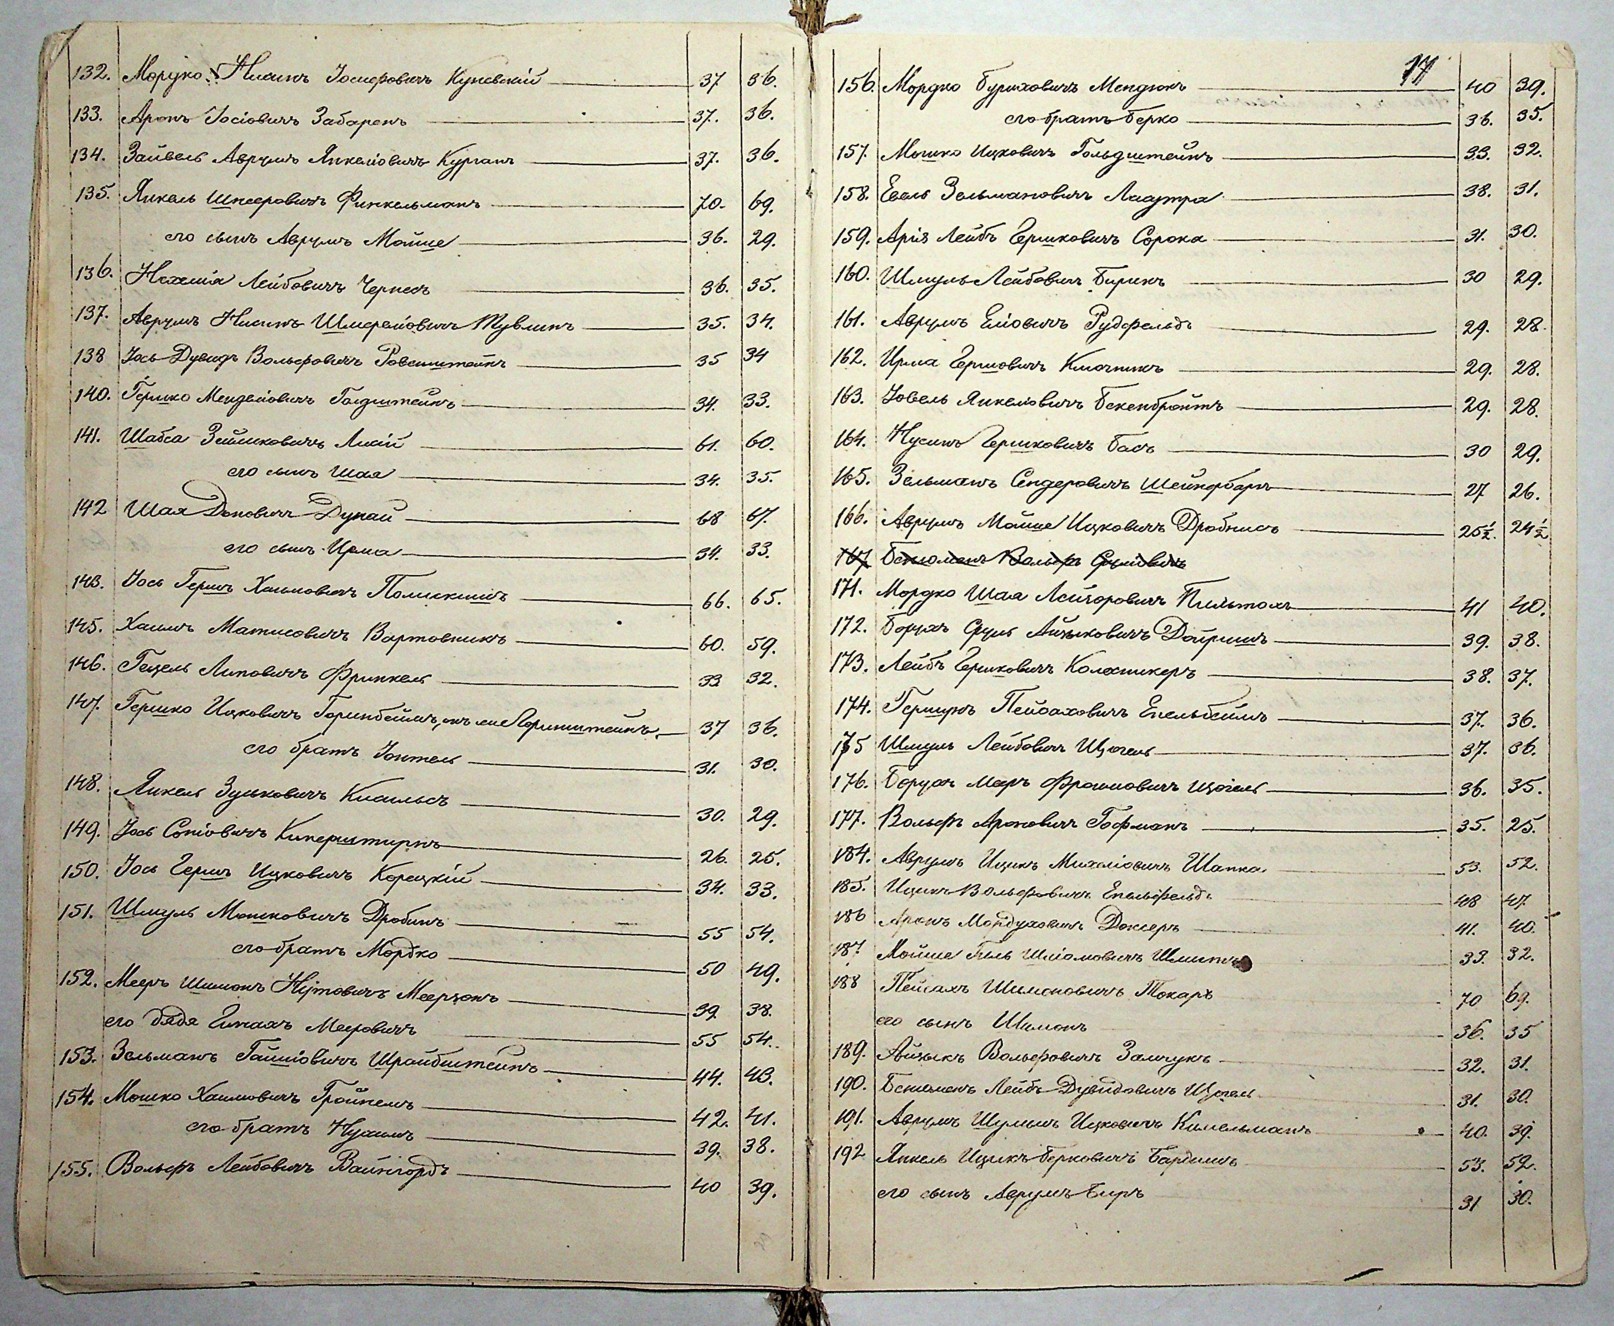 132. Мордко Нисинъ Іосифовичъ Куневскій 37 36.
133. Аронъ Іосіовичъ Забаренъ 37. 36.
134. Зайвель Аврумъ Янкеліовичъ Курганъ 37. 36.
135. Янкель Шнееровичъ Финкельманъ 70. 69.
его сынъ Аврумъ Мойше 36. 29.
136. Нехемія Лейбовичъ Чернесъ 36. 35.
137. Аврумъ Нисинъ Шмереліовичъ 35. 34.
138 Іось Дувидъ Вольфовичъ 35 34
140. Гершко Менделіовичъ Голдштейнъ 34. 33.
141. Шабса Зейликовичъ 61. 60.
его сынъ Шая 34. 35.
142 Шая Доновичъ Дунай 68 67.
его сынъ Ирма 34. 33.
143. Іось Гершъ Хаимовичъ 66. 65.
145. Хаимъ Матисовичъ Вартовникъ 60. 59.
146. Гецель Липовичъ Фринкель 33 32.
147. Гершко Ицковичъ Горинбеймъ, онъ же Горинштейнъ. 37 36.
его братъ Іонтель 31. 30.
148. Янкель Зуньковичъ 30. 29.
149. Іось Сопіовичъ 26. 25.
150. Іось Гершъ Ицковичъ Корецкій 34. 33.
151. Шмуль Мошковичъ Дробинъ 55 54.
его братъ Мордко 50 49.
152. Мееръ Шимонъ Меерзонъ 39 38.
его дядя Меировичъ 55 54.
153. Зельманъ Шрайбштейнъ 44. 43.
154. Мошко Хаимовичъ Гройнемъ 42. 41.
его братъ Нухимъ 39. 38.
155. Вольфъ Лейбовичъ Вайнгордъ 40 39.
17
156. Мордко Буриховичъ Мендюкъ 40 39.
его братъ Берко 36. 35.
157. Мошко Ицковичъ Гольдштейнъ 33. 32.
158. Евель Зельмановичъ 38. 31.
159. Арія Лейбъ Гершковичъ Сорока 31. 30.
160. Шмуль Лейбовичъ Биринъ 30 29.
161. Аврумъ Еліовичъ Рудфельдъ 29. 28.
162. Ирма Гершовичъ Ключникъ 29. 28.
163. Іовель Янкеліовичъ Бекенбройтъ 29. 28.
164. Нусинъ Гершковичъ Басъ 30 29.
165. Зельманъ Сендеровичъ 27 26.
166. Аврумъ Мойше Ицковичъ Дробнисъ 25½. 24½
167 Беньоменъ Вольфъ Сруловичъ
171. Мордко Шая 41 40.
172. Борухъ Сруль Айзыковичъ 39. 38.
173. Лейбъ Гершковичъ Колесникеръ 38. 37.
174. Гершунъ Пейсаховичъ Епельбеймъ 37. 36.
175 Шмуль Лейбовичъ Щогель 37. 36.
176. Борухъ Меръ Фроимовичъ Щогель 36. 35.
177. Вольфъ Ароновичъ Гофманъ 35. 25.
184. Аврумъ Ицикъ Михеліовичъ Шапка. 53. 52.
185. Ицикъ Вольфовичъ Епельфельдъ 48 47
186 Аронъ Мордуховичъ 41. 40.
187. Мойше Гиль Шліомовичъ 33. 32.
188 Пейсахъ Шимоновичъ Токаръ 70 69.
его сынъ Шимонъ 36. 35
189. Айзыкъ Вольфовичъ Замчукъ 32. 31.
190. Беньоменъ Лейбъ Дувидовичъ Щогель 31. 30.
191. Аврумъ Ицковичъ Кимельманъ 40. 39.
192 Янкель Ицикъ Берковичъ 53. 52.
его сынъ Аврумъ Беръ 31 30.